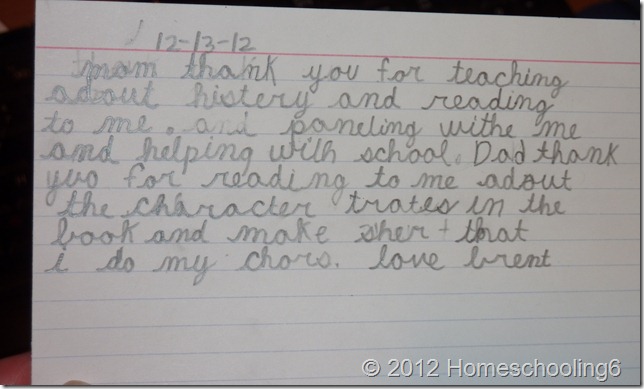 12-13-12
mom thank you for teaching
adout histery and reading
to me. and paneling withe me
and helping with school. Dad thank
yuo for reading to me adout
the character trates in the
book and make sher that
i do my chors. love brent
© 2012 Homeschooling6